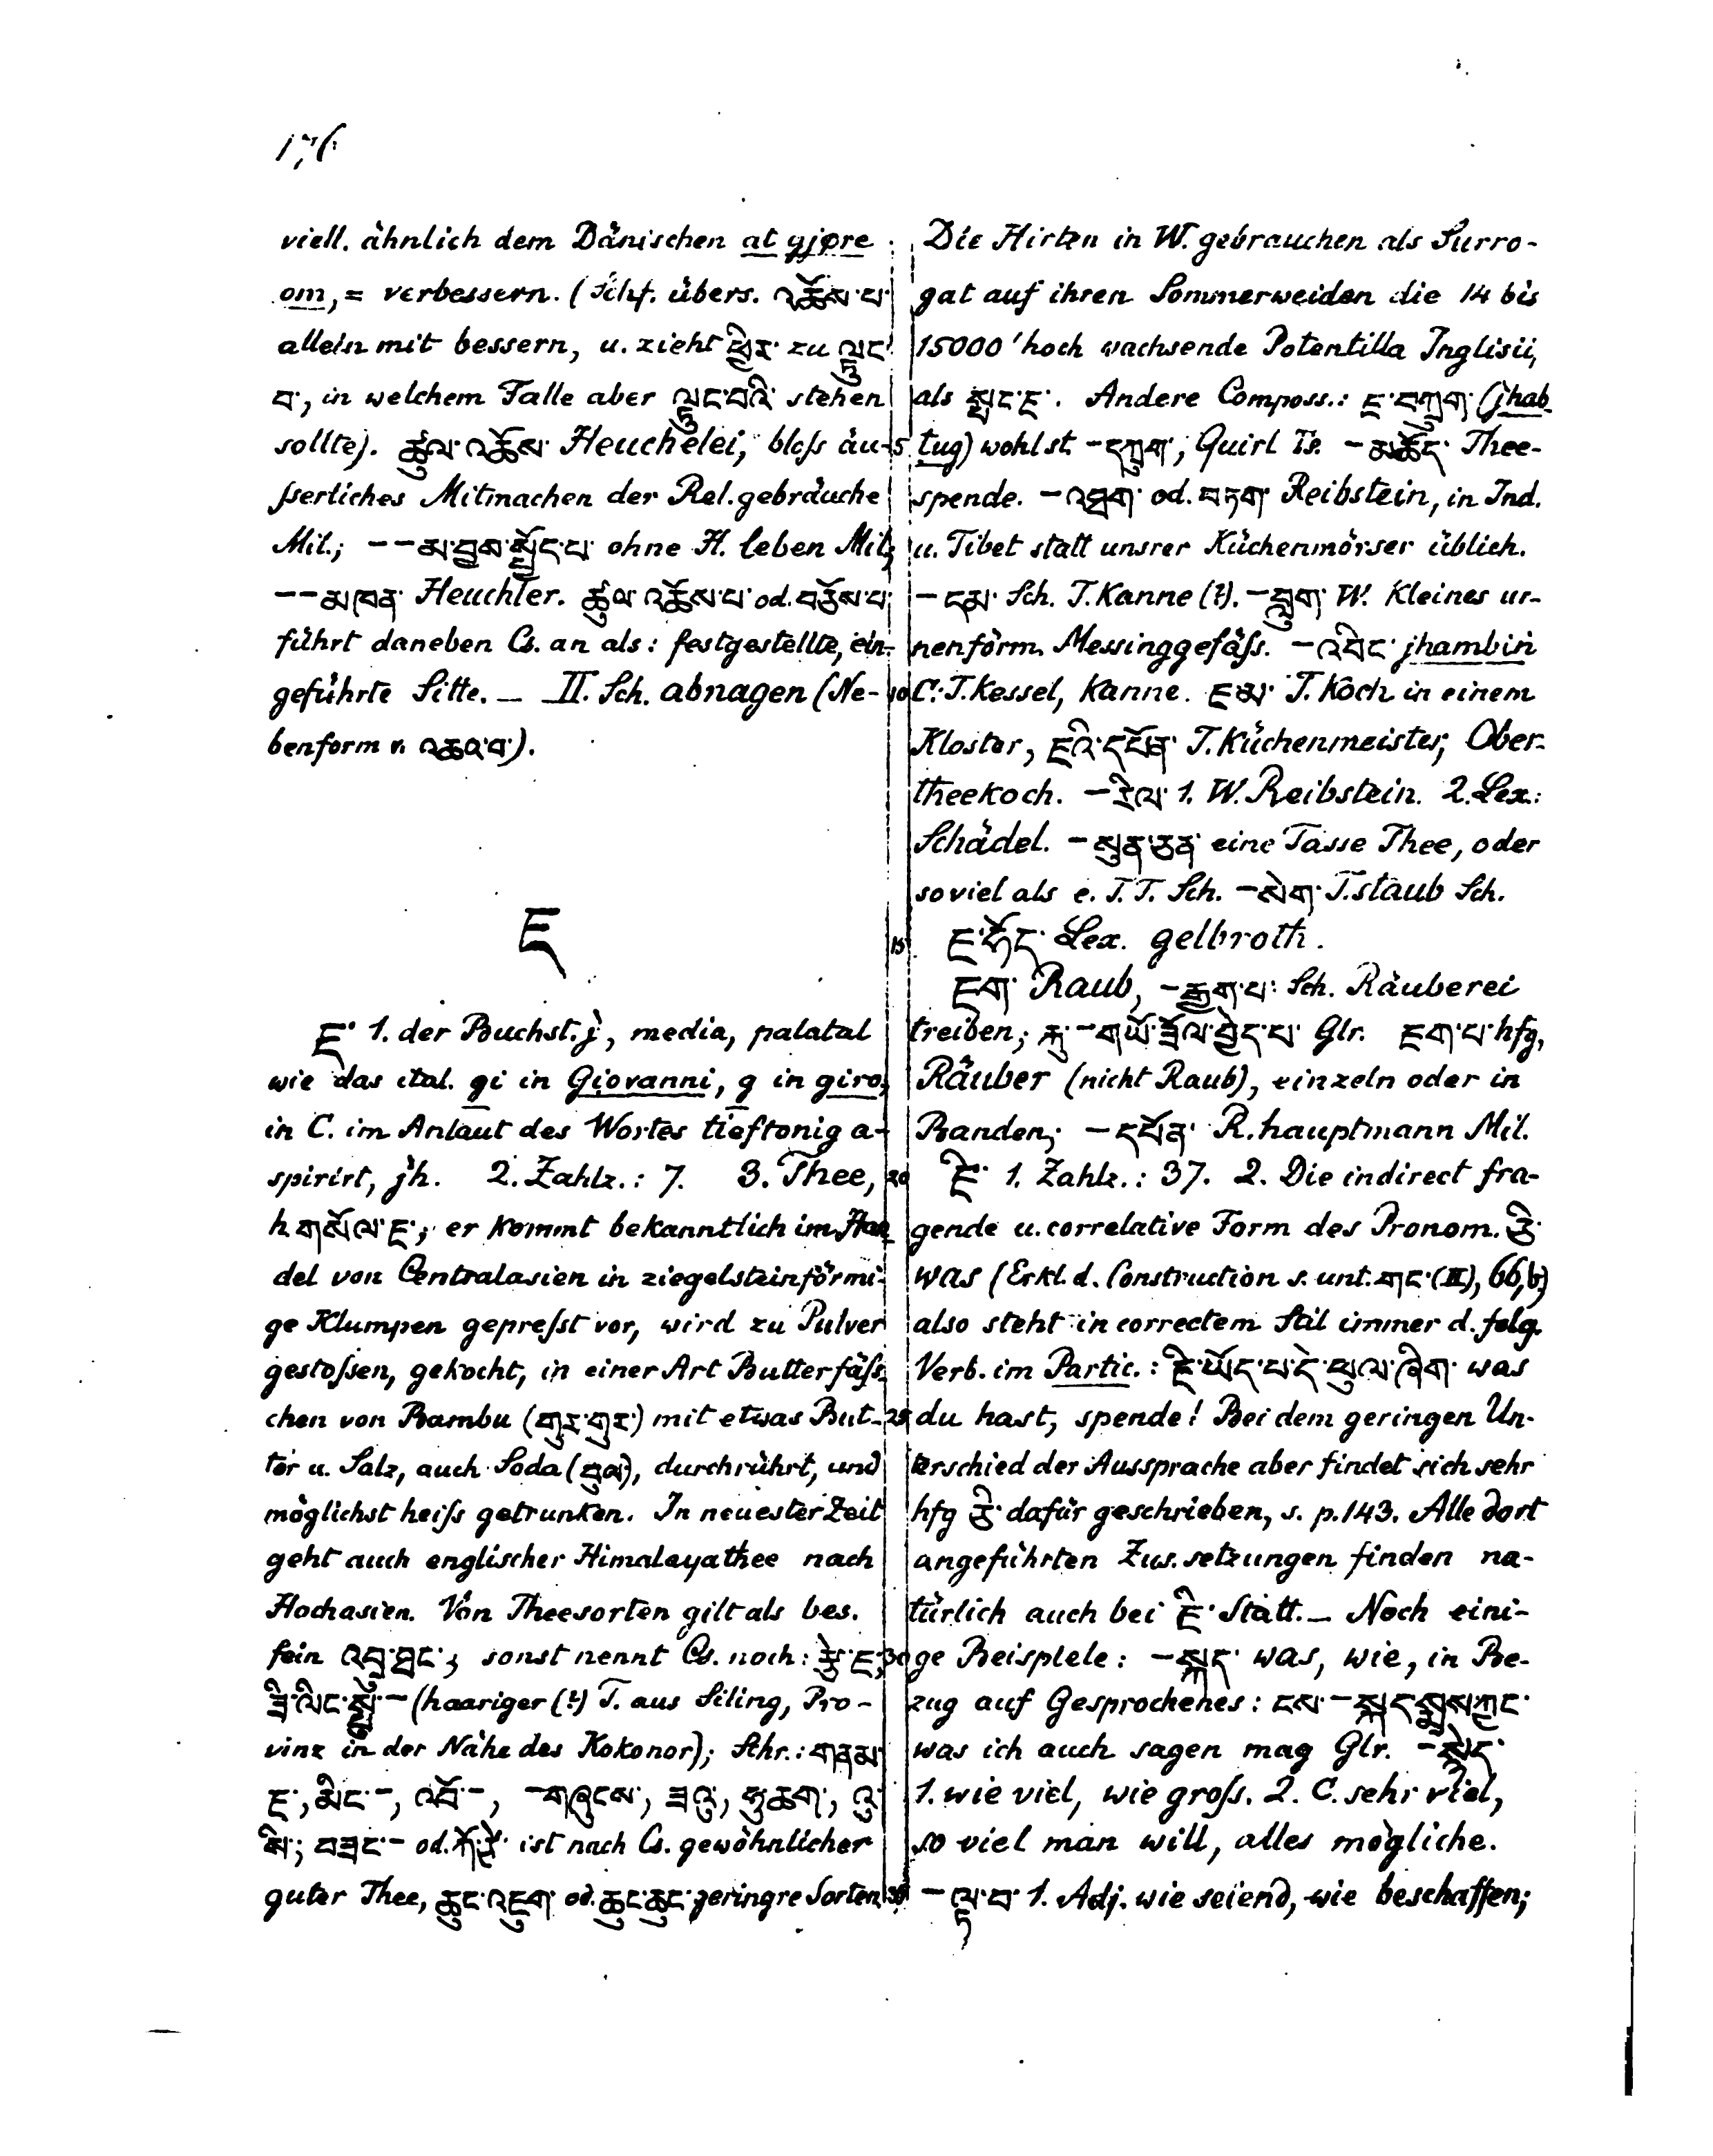 176
viell. ähnlich dem Dänischen at gjøre
om, = verbessern. (Schf. übers. འཆོས་པ་
allein mit bessern, u. zieht ཕྱིར་ zu ལྟུང་
བ་, in welchem Falle aber ལྟུང་བའི་ stehen
sollte). ཚུལ་འཆོས་ Heuchelei, bloſs äu-
ſserliches Mitmachen der Rel.gebräuche
Mil.; – – མ་བྱས་སྤྱོད་པ་ ohne H. leben Mil;
– – མཁན་ Heuchler. ཚུལ་འཆོས་པ་ od. བཅོས་པ་
führt daneben Cs. an als: festgestellte, ein-
geführte Sitte. — II. Sch. abnagen (Ne-
benform v. འཆའ་བ་).
ཇ
ཇ་ 1. der Buchst. j, media, palatal
wie das ital. gi in Giovanni, g in giro,
in C. im Anlaut des Wortes tieftonig a-
spirirt, jh. 2. Zahlz.: 7. 3. Thee,
h. གསོལ་ཇ་; er kommt bekanntlich im Han-
del von Centralasien in ziegelsteinförmi-
ge Klumpen gepreſst vor, wird zu Pulver
gestoſsen, gekocht, in einer Art Butterfäſs-
chen von Bambu (གུར་གུར་) mit etwas But-
ter u. Salz, auch Soda (བུལ་), durchrührt, und
möglichst heiſs getrunken. In neuester Zeit
geht auch englischer Himalayathee nach
Hochasien. Von Theesorten gilt als bes.
fein འབྲུ་ཐང་; sonst nennt Cs. noch: རྩེ་ཇ་,
ཟི་ལིང་སྤུ་ – (haariger (?) T. aus Siling, Pro-
vinz in der Nähe des Kokonor); Schr.: གནམ་
ཇ་, མིང་ –, འབོ་ –, – གཞུངས་, ཟའུ་, ཧུཆག་, འུ་
སི་; བཟང་ – od. ist nach Cs. gewöhnlicher
guter Thee, ཆུང་འཇུག་ od. ཆུང་ཆུང་ geringre Sorten.
Die Hirten in W. gebrauchen als Surro-
gat auf ihren Sommerweiden die 14 bis
15000' hoch wachsende Potentilla Inglisii,
als སྤང་ཇ་. Andere Composs.: ཇ་བཀྲུག་ (jhab
tug) wohl st. – དཀྲུག་, Quirl Ts. – མཆོད་ Thee-
spende. – འཐག་ od. བཏག་ Reibstein, in Ind.
u. Tibet statt unsrer Küchenmörser üblich.
– དམ་ Sch. T. Kanne (?). – བླུག་ W. Kleines ur-
nenförm. Messinggefäſs. – འབིང་ jhambiṅ
C.: T. Kessel, Kanne. ཇ་མ་ T. Koch in einem
Kloster, ཇའི་དཔོན་ T. Küchenmeister, Ober-
theekoch. – རིལ་ 1. W. Reibstein. 2. Lex.:
Schädel. – སུན་ཅན་ eine Tasse Thee, oder
soviel als e. T. T. Sch. – སེག་ T.staub Sch.
ཇ་ཧོང་ Lex. gelbroth.
ཇག་ Raub, – རྒྱག་པ་ Sch. Räuberei
treiben; རྐུ་ – གཡོ་ཟོལ་བྱེད་པ་ Glr. ཇག་པ་ hfg,
Räuber (nicht Raub), einzeln oder in
Banden; – དཔོན་ R. hauptmann Mil.
ཇི་ 1. Zahlz.: 37. 2. Die indirect fra-
gende u. correlative Form des Pronom. ཅི་
was (Erkl. d. Construction s. unt. གང་ (II), 66,b)
also steht in correctem Stil immer d. folg.
Verb. im Partic.: ཇི་ཡོད་པ་དེ་ཕུལ་ཞིག་ was
du hast, spende! Bei dem geringen Un-
terschied der Aussprache aber findet sich sehr
hfg ཅི་ dafür geschrieben, s. p. 143. Alle dort
angeführten Zus.setzungen finden na-
türlich auch bei ཇི་ Statt. — Noch eini-
ge Beispiele: – སྐད་ was, wie, in Be-
zug auf Gesprochenes: ངས་ – སྐད་སྨྲས་ཀྱང་
was ich auch sagen mag Glr. – སྙེད་
1. wie viel, wie groſs. 2. C. sehr viel,
so viel man will, alles mögliche.
– ལྟ་བ་ 1. Adj. wie seiend, wie beschaffen;